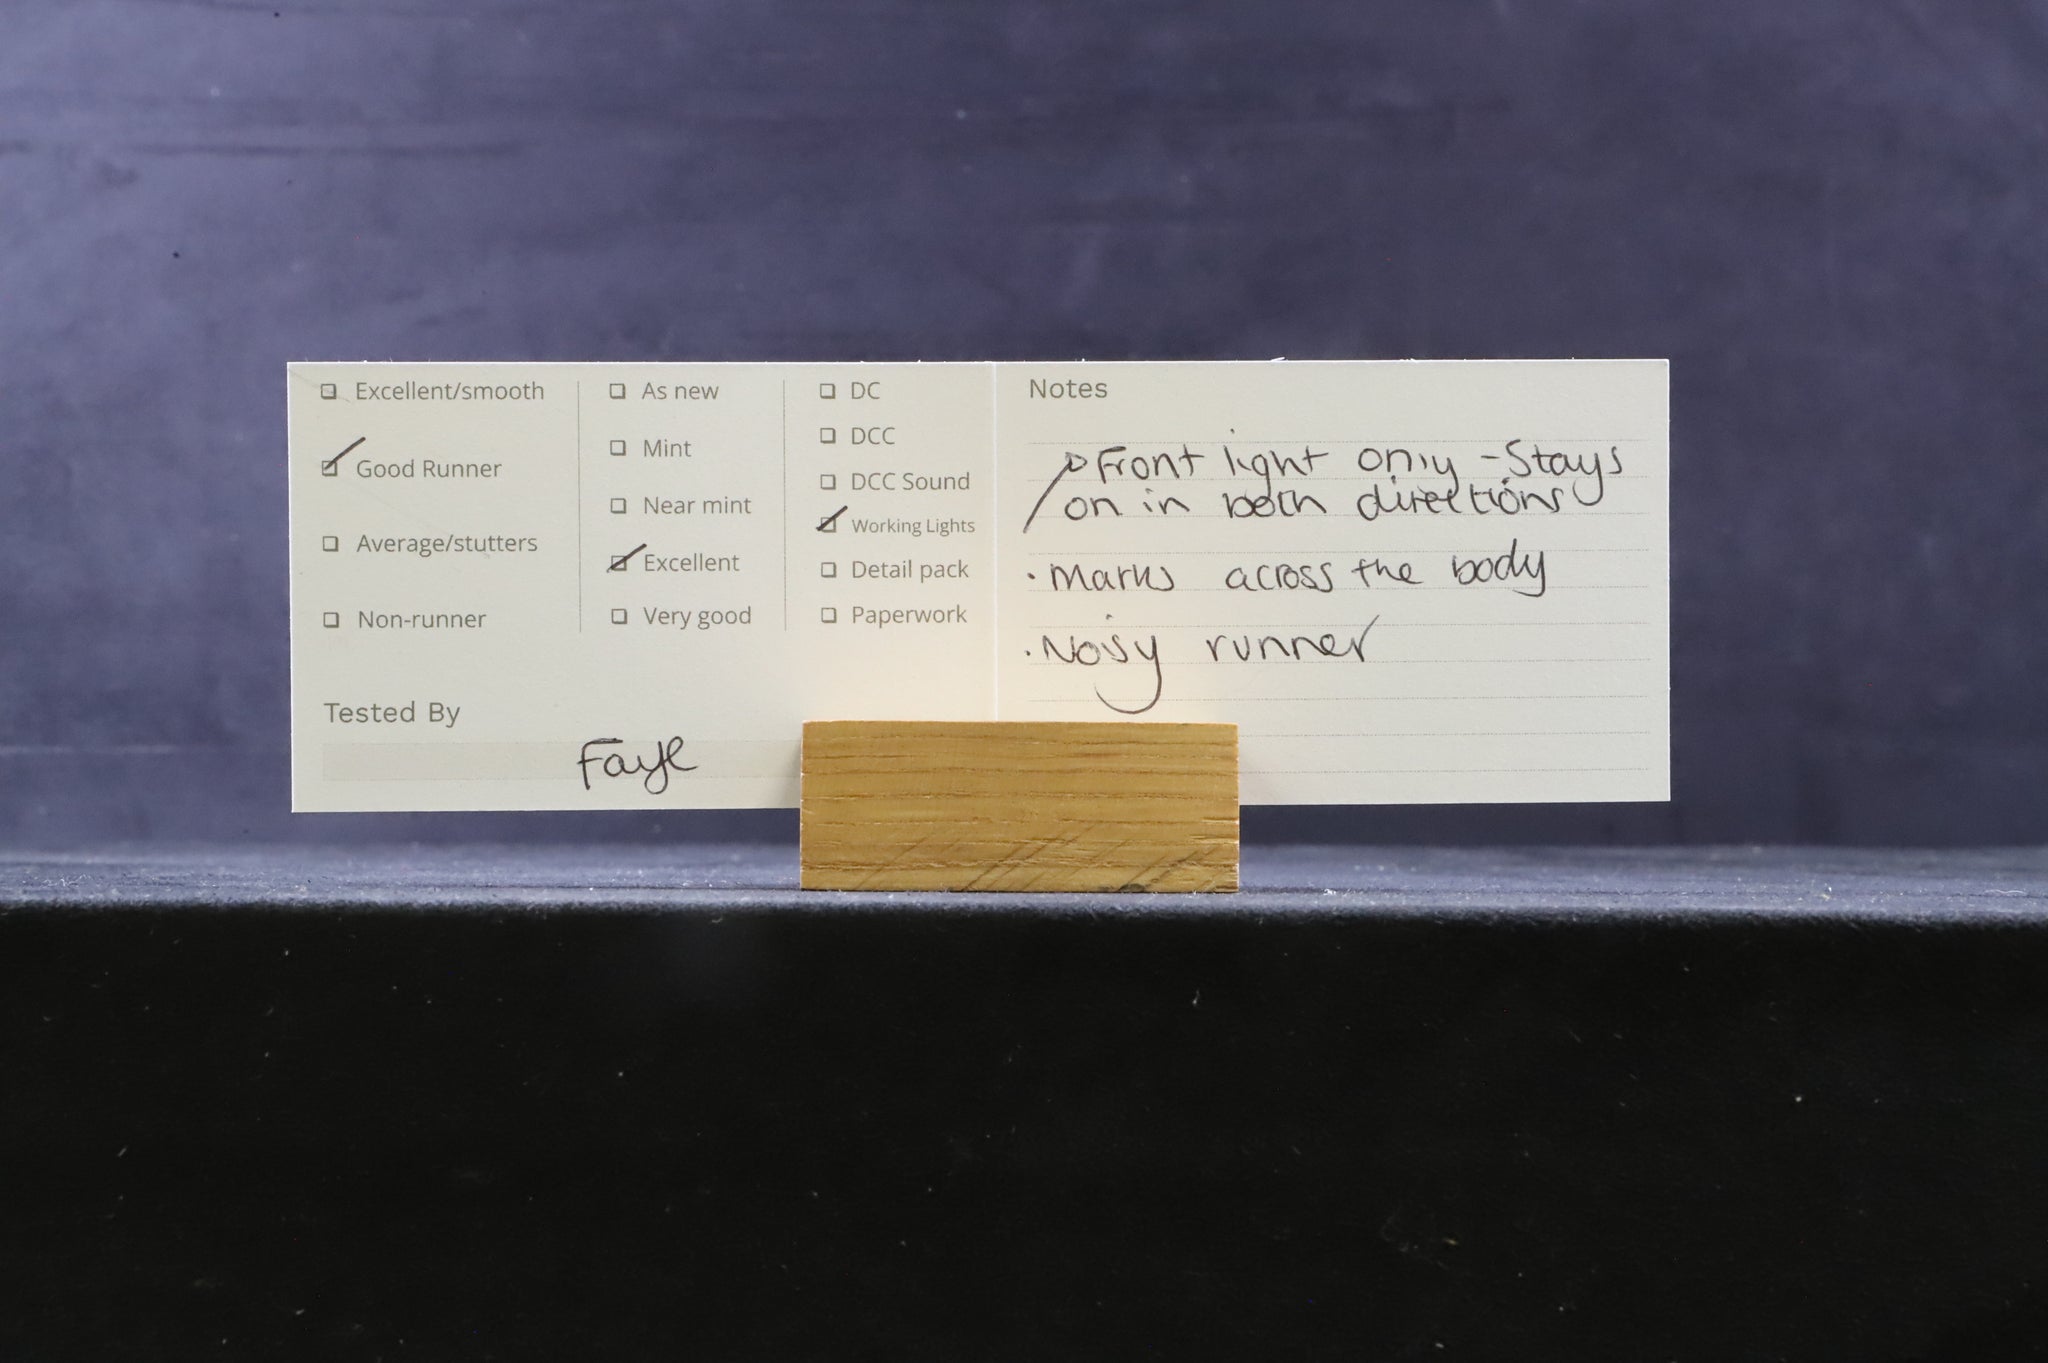 Excellent/smooth
Good Runner
Average/stutters
Non-runner
As new
Mint
Near mint
Excellent
Very good
DC
DCC
DCC Sound
Working Lights
Detail pack
Paperwork
Tested By
Faye
Notes
Front light only - Stays
on in both directions
· Marks across the body
· Noisy runner